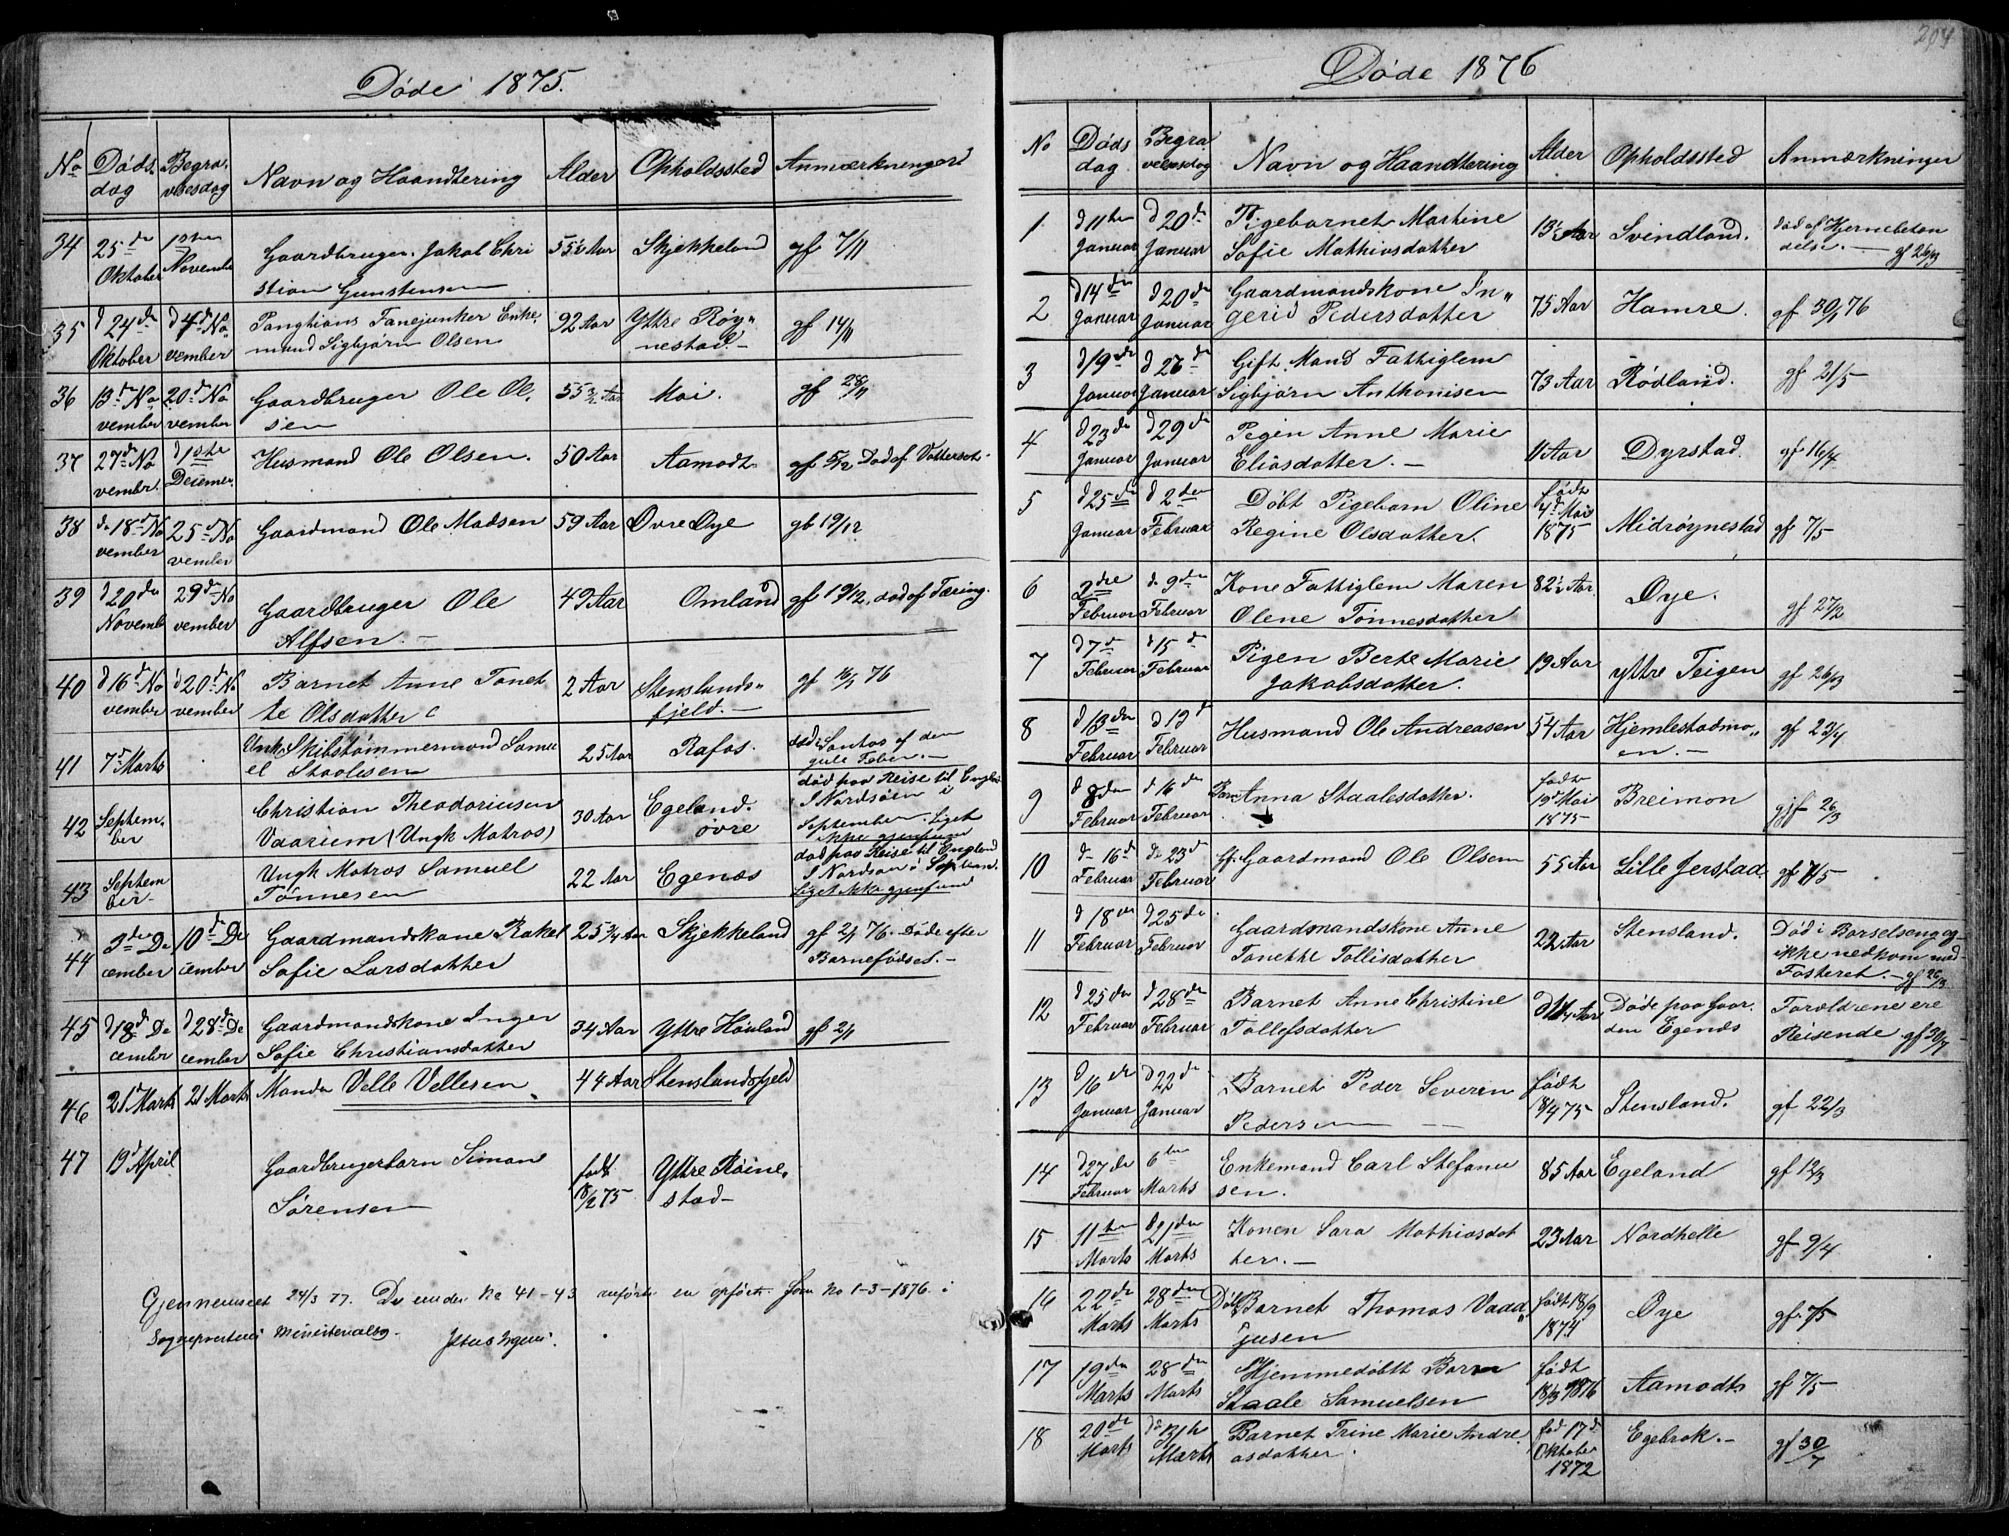 204
Døde 1875.
No Døds dag Begravelsesdag Navn og Haandtering Alder Opholdssted Anmærkninger
34 25de 1ste Gaardbruger Jakob Chri 55½ Aar Skjekkeland gf 7/11
Oktober November stian Gunstensen
35 d 24de d 4de No Enke, 92 Aar Yttre Røy„ gf 14/11
Oktober vember mand Sigbjørn Olsen nestad.
36 13de No 20de No Gaardbruger Ole Ol, 55 Aar Moi. gf 28/11
vember vember sen
37 27de No d 1ste Husmand Ole Olsen. 50 Aar Aamodt gf 5/12 Død af
vember.
38 de 18de No 25de No Gaardmand Ole Madsen 59 Aar Øvre Øye gb 19/12
vember vember
39 d 20de 29de No Gaardbruger Ole 49 Aar Omland gf 19/12, død af Tæring.
Novemb vember Alfsen.
40 d 16de No d 20de No Barnet Anne Tonet 2 Aar Stenslands„ gf 16/1 76
vember vember te Olsdatter fjeld.
41 7de Marts Ungk. Skibstømmermand Samu 25 Aar Rafos. død i Santos af den
el Staalesen gule Feber.
42 Septem, Christian Theodoriusen 30 Aar Egeland. død paa Reise til England
ber Vaarium (Ungk Matros) øvre I Nordsøen i
September. Liget
ikke gjenfund
43 Septem Ungk Matros Samuel 22 Aar Egenæs død paa Reise til England
ber Tønnesen I Nordsøen i Septem.
Liget ikke gjenfund
44 De 10de De Gaardmandskone Rakel 25¾ Aar Skjekkeland gf 2/1 76. Døde efter
cember cember Sofie Larsdatter Barnefødsel.
45 d 18de De d 28de De Gaardmandskone Inger 34 Aar Yttre Houland gf 2/1
cember cember Sofie Christiansdatter
46 21de Marts 21 Marts Manda Velle Vellesen 44 Aar Stenslandsfjeld
47 19de April Gaardbrugerbarn Simon født Yttre Røine,
Sørensen 18/2 75 stad
Gjennemseet 24/3 77. De under No 41-43 anførte er opført som No 1-3-1876 i
Sogneprestens Ministerialbog.
Døde 1876
No Døds dag Begravelsesdag Navn og Haandtering Alder Opholdssted Anmærkninger
1 d 11te d 20de Pigebarnet Martine 13½ Aar Svindland. død af Hjernebeton
Januar Januar Sofie Mathiasdatter delse. gf 26/3
2 d 14de d 20de Gaardmandskone In„ 75 Aar Hamre. gf 30/1 76
Januar Januar gerid Pedersdatter
3 d 19de d 27de Gift Mand Fattiglem 73 Aar Rødland. gf 21/5
Januar Januar Sigbjørn Anthonisen
4 d 23de d 29de Pigen Anne Marie 11 Aar Dyrstad. gf 16/4
Januar Januar Eliasdatter.
5 d 25de d 2den Døbt Pigebarn Oline født 4de Mai 1875 Midrøynestad gf 7/5
Januar Februar Regine Olsdatter.
6 2den de 9de Kone Fattiglem Maren 82½ Aar. Øye. gf 27/2
Februar Februar Olene Tønnesdatter
7 d 7de d 15de Pigen Berte Marie 19 Aar yttre Teigen gf 26/3
Februar Februar Jakobsdatter.
8 d 13de d 19de Husmand Ole Andreasen 54 Aar Hjemlestadmo„ gf 23/4
Februar Februar en.
9 d 8de d 16de Barn Anna Staalesdatter. født 19de Mai 1875 Breimon gjf 26/3
Februar Februar
10 de 16de de 23de Gf. Gaardmand Ole Olsen 55 Aar Lille Jerstad gf 7/5
Februar Februar
11 d 18de d 25de Gaardmandskone Anne 22 Aar Stensland. Død i Barselseng og
Februar Februar Tonette Tollisdatter ikke nedkom med
Fosteret. gf 26/3
12 d 25de d 28de Barnet Anne Christine Aar Døde paa Gaar Forældrene ere
Februar Februar Tollefsdatter den Egenæs Reisende gf 30/7
13 d 16de d 22de Barnet Peder Severin født Stensland. gf 22/3
Januar Januar Pedersen 8/4 75
14 d 27de 6te Enkemand Carl Stefanu 85 Aar Egeland gf 12/3
Februar Marts sen.
15 11te d 21de Konen Sara Mathiasdat 23 Aar Nordhelle gf 9/4
Marts Marts ter.
16 22de 28de Døbt Barnet Thomas Vaad„ født 18/9 Øye gf 7/5
Marts Marts jusen 1874
17 19de 28de Hjemmedøbt Barn født Aamodt gf 7/5
Marts Marts Staale Samuelsen 18/3 1876
18 20de Barnet Trine Marie Andre fød 17de Egebrok. gf 30/7
Marts Marts asdatter. Oktober
1872